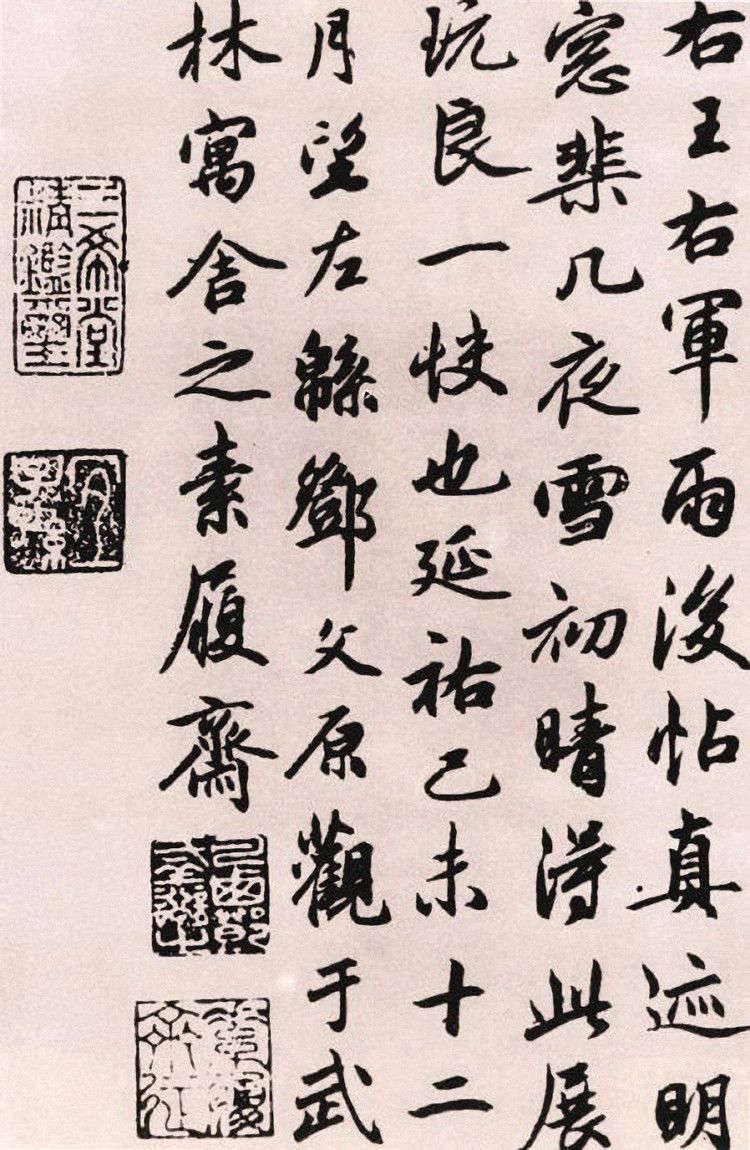 右王右軍雨後帖真迹明
窓棐几夜雪初晴得此展
玩良一快也延祐己未十二
月望左緜鄧文原觀于武
林寓舍之素履齋
三希堂精鑑璽
宜子孫